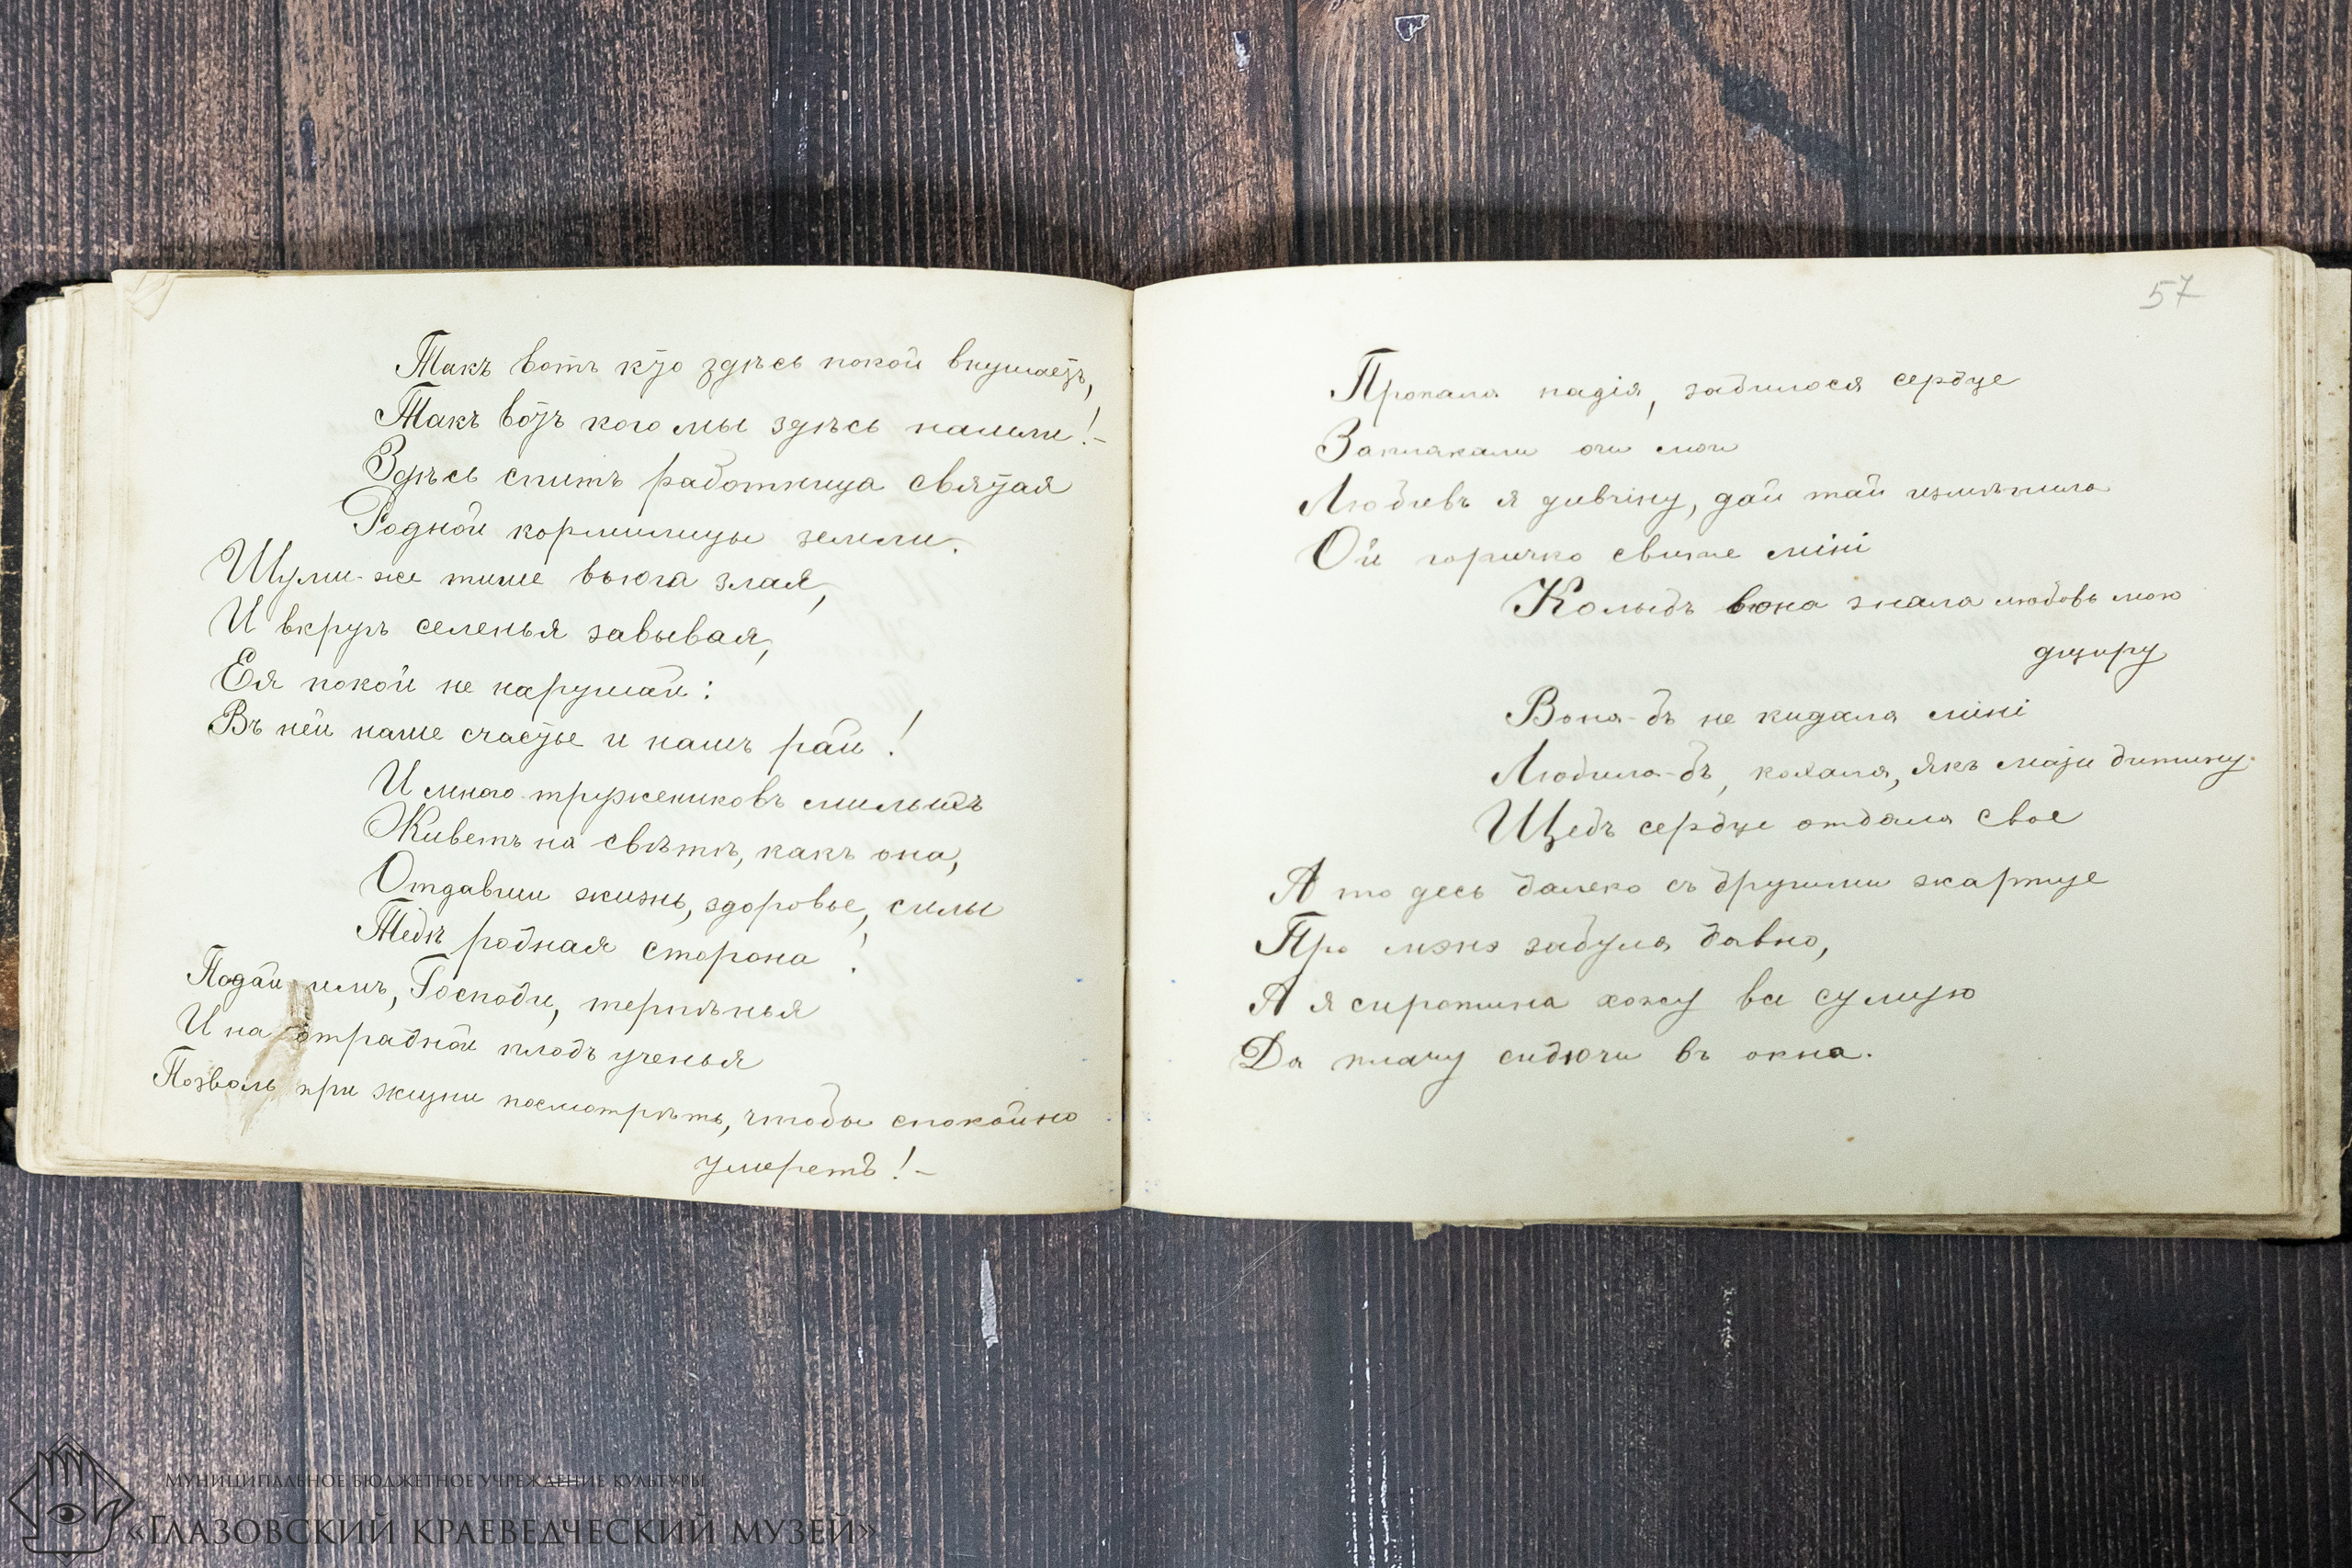 Такъ вотъ кто здѣсь покой внушаетъ,
Такъ вотъ кого мы здѣсь нашли! –
Здѣсь спитъ работница святая
Родной кормилицы земли.
Шуми-же тише вьюга злая,
И вкругъ селенья завывая,
Ея покой не нарушай:
Въ ней наше счастье и нашъ рай!
И много тружениковъ милыхъ
Живетъ на свѣтѣ, какъ она,
Отдавши жизнь, здоровье, силы
Тебѣ родная сторона!
Подай имъ, Господи, терпѣнья
И на отрадной плодъ ученья
Позволь при жизни посмотрѣть, чтобы спокойно
умереть! –
57
Пропала надія, забилося сердце
Заплакали очи мои
Любивъ я дивчіну, дай тай измѣнила
Ой горичко свите міні
Колыбъ вона знала любовь мою
дщиру
Вона-бъ не кидала міні
Любила-бъ, кохала, якъ мати дитину.
Щебъ сердце отдала свое
А то десь далеко съ другими жартуе
Про мэнэ забула давно,
А я сиротина хожу все сумую
Да плачу сидючи въ окна.
МУНИЦИПАЛЬНОЕ БЮДЖЕТНОЕ УЧРЕЖДЕНИЕ КУЛЬТУРЫ
«ГЛАЗОВСКИЙ КРАЕВЕДЧЕСКИЙ МУЗЕЙ»